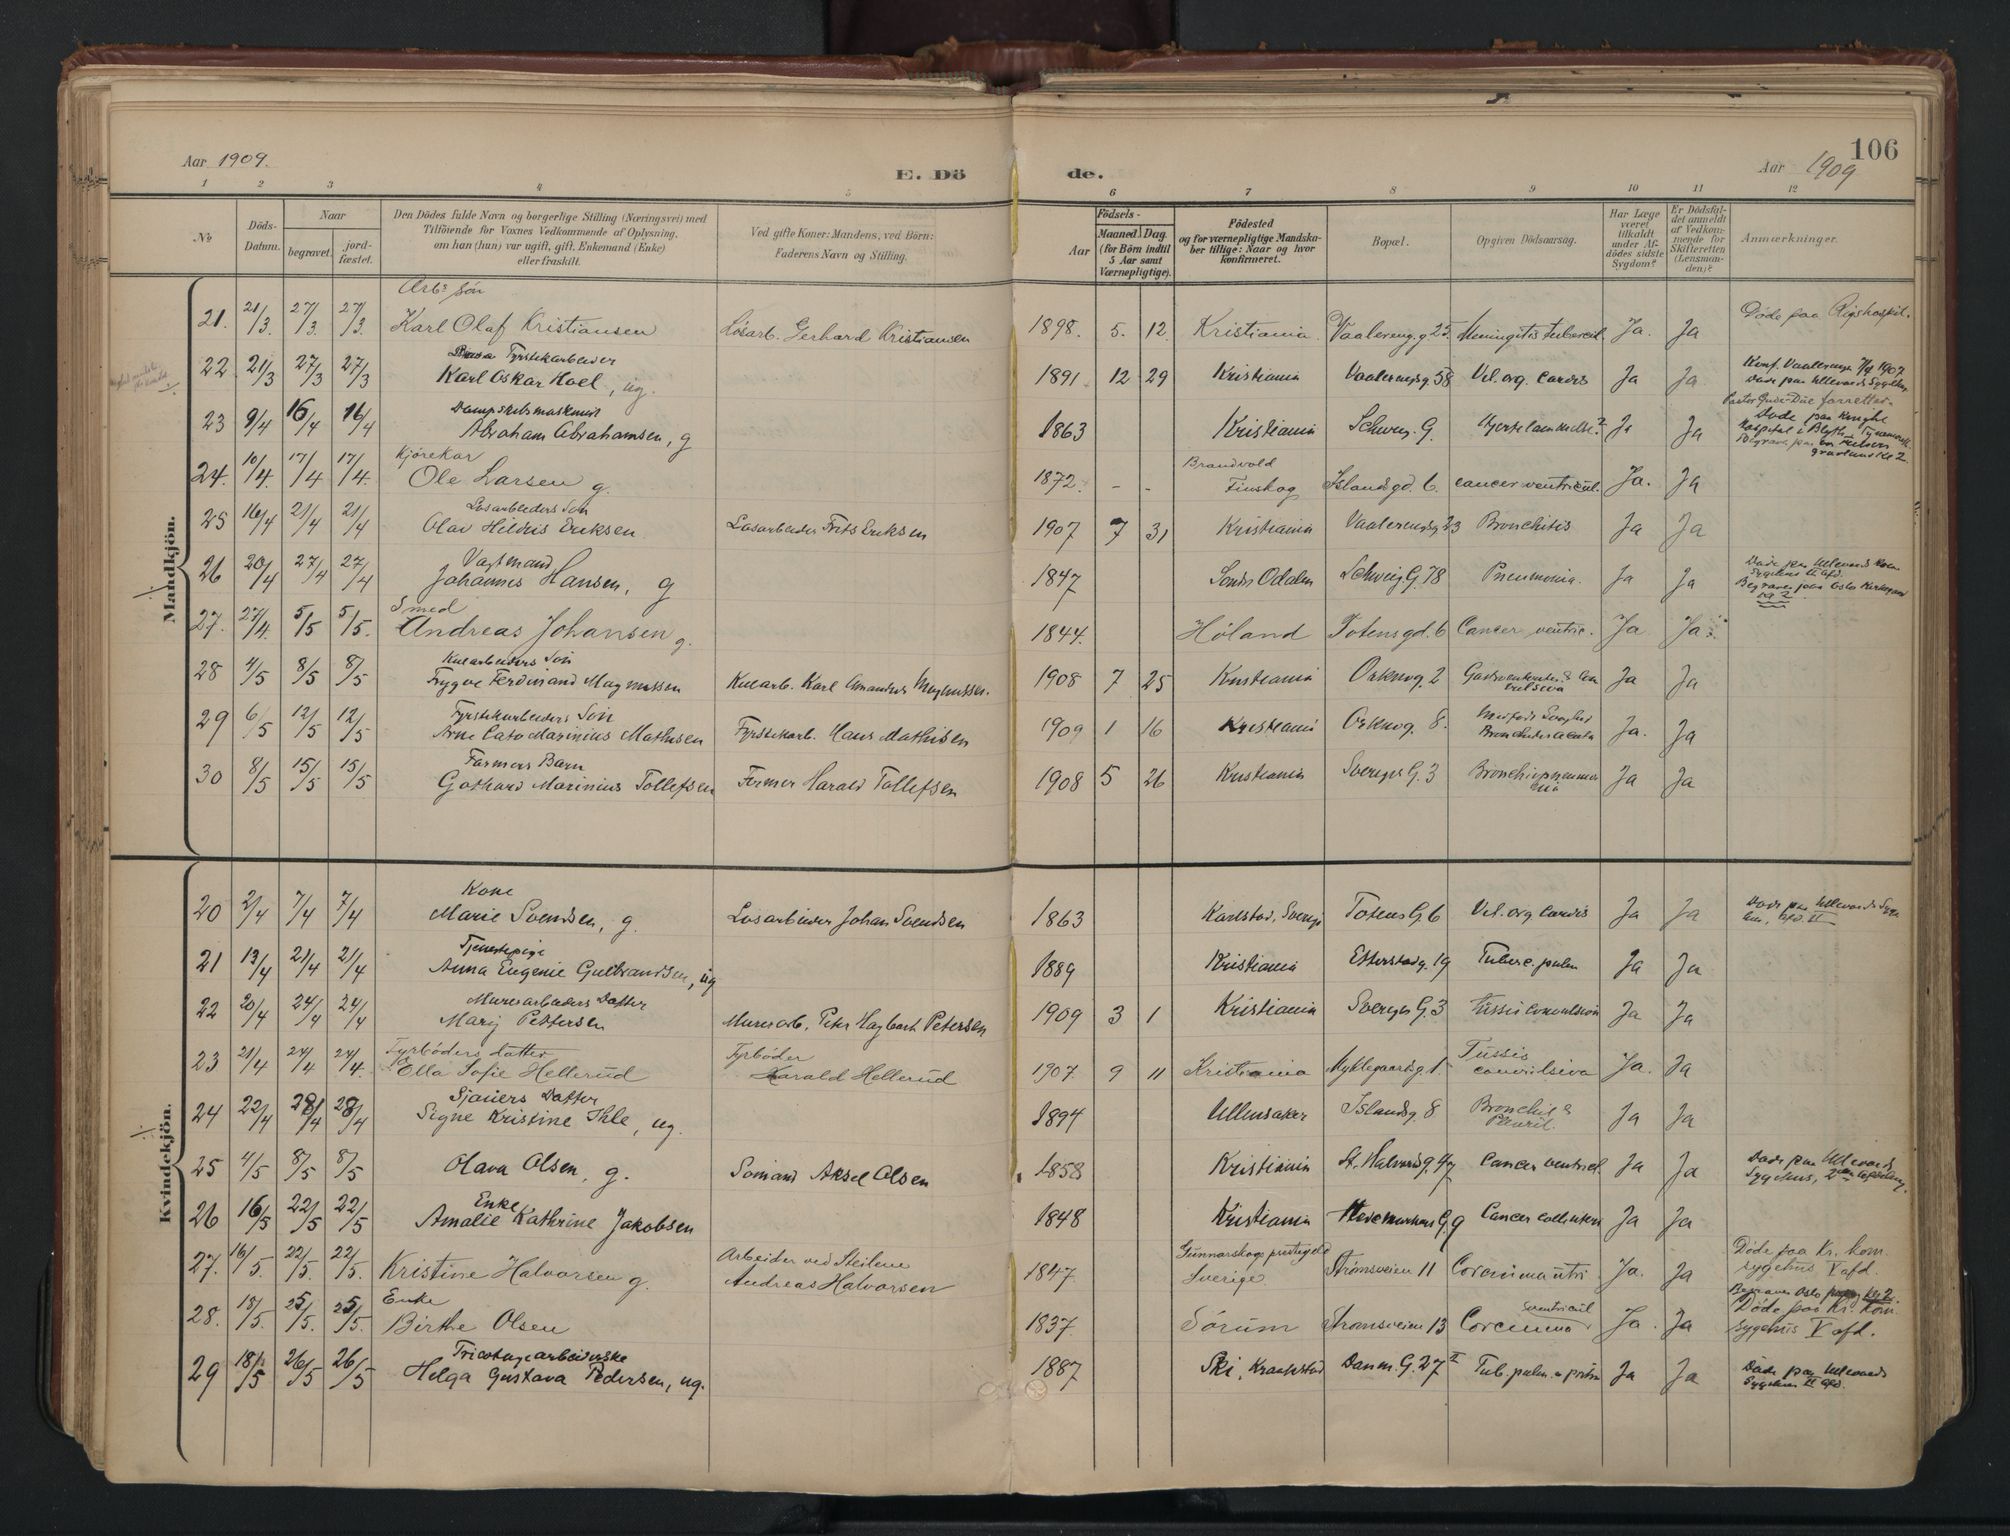 106
Aar 1909.
E. Dö
de.
Aar 1909
1 2 3 4 5 6 7 8 9 10 11 12
No
Döds-
Datum.
Naar
begravet.
jord-
fæstet.
Den Dödes fulde Navn og borgerlige Stilling (Næringsvei) med
Tilföiende for Voxnes Vedkommende af Oplysning,
om han (hun) var ugift, gift, Enkemand (Enke)
eller fraskilt.
Ved gifte Koner: Mandens, ved Börn:
Faderens Navn og Stilling.
Födsels-
Aar
Maaned
Dag.
(for Börn indtil
5 Aar samt
Værnepligtige).
Födested
og for værnepligtige Mandska-
ber tillige: Naar og hvor
konfirmeret.
Bopæl.
Opgiven Dödsaarsag.
Har Læge
været
tilkaldt
under Af-
dödes sidste
Sygdom?
Er Dödsfal-
det anmeldt
af Vedkom-
mende for
Skifteretten
(Lensman-
den)?
Anmærkninger.
Mandkjön.
Arb. Søn
21. 21/3 27/3 27/3. Karl Olaf Kristiansen Løsarb. Gerhard Kristiansen 1898. 5. 12. Kristiania. Vaalereng.g 25. Meningitis tubercul. Ja. Ja Døde paa Rigshospit.
Fyrstikarbeider
22 21/3 27/3 27/3 Karl Oskar Hoel, ug. 1891 12 29 Kristiania Vaalerengsg 58 Vit. org. cordis Ja Ja Konf. Vaalerengen 1907
Døde paa Ullevaals Sygehus
Dampskibsmaskinist
23 9/4 16/4 16/4 Abraham Abrahamsen, g 1863 Kristiania Schweig. G. Hjertelammelse? Ja Ja Døde paa Knight
Hospital i Blyth
Kjørekar
24. 10/4. 17/4 17/4. Ole Larsen g. 1872. - - Brandvold
Finskog Islandsgd. 6. cancer ventricul. Ja. Ja
Løsarbeiders Søn
25 16/4 21/4 21/4 Olav Hildris Eriksen Løsarbeider Frits Eriksen 1907 7 31 Kristiania Vaalerengsg 23 Bronchitis Ja Ja
Vagtmand
26 20/4 27/4 27/4 Johannes Hansen, g 1847 Søndre Odalen Schweig. G. 78 Pneumonia. Ja Ja Døde paa Ullevaals Kom.
Sygehus II afd.
Begraves paa Oslo Kirkegaard
Smed
27. 27/4. 5/5 5/5. Andreas Johansen g. 1844. Høland Totensgd. 6 Cancer ventric. Ja Ja
Kularbeiders Søn
28 4/5 8/5 8/5 Trygve Ferdinand Magnussen Kularb. Karl Amandus Magnussen. 1908 7 25 Kristiania Orknøg. 2 Ja Ja
Fyrstikarbeiders Søn
29 6/5 12/5 12/5 Arne Cato Marinius Mathisen Fyrstikarb. Hans Mathisen 1909 1 16 Kristiania Orknøg. 8. Medfødt Svaghed
Bronchitis acuta Ja. Ja
Formers Barn
30 8/5 15/5 15/5 Gothard Marinius Tollefsen Former Harald Tollefsen 1908 5 26 Kristiania Sverges G. 3 Bronchiopneumo
nia Ja Ja
Kvindekjön.
Kone
20 2/4 7/4 7/4 Marie Svendsen, g. Løsarbeider Johan Svendsen 1863 Karlstad, Sverige Totens G. 6 Vit. org. Cordis Ja Ja Døde paa Ullevaals Syge
hus, Afd. II
Tjenestepige
21 13/4 21/4 21/4 Anna Eugenie Gulbrandsen, ug 1889 Kristiania Etterstadg. 19 Tuberc. pulm Ja Ja
Murerarbeiders Datter
22 20/4 24/4 24/4 Mary Pettersen Murerarb. Peter Hagbart Petersen 1909 3 1 Kristiania Sverges G. 3 tussis convulsiva Ja Ja
Fyrbøders datter
23 21/4 24/4 24/4. Ella Sofie Hellerud Fyrbøder
Harald Hellerud 1907. 9 11 Kristiania Myklegaardsg. 1. Tussis
convulsiva Ja. Ja
Sjauers Datter
24 22/4 28/4 28/4 Signe Kristine Ihle, ug. 1894 Ullensaker Islandsg. 8 Bronchit &
Pleurit. Ja Ja
25 4/5 8/5 8/5 Olava Olsen, g. Sømand Aksel Olsen 1858 Kristiania St. Halvards g. 47 Cancer ventricl Ja Ja Døde paa Ullevaals
Sygehus, 2den Afdeling.
Enke
26 16/5 22/5 22/5 Amalie Kathrine Jakobsen 1848 Kristiania Hedemarkens G. 9 Cancer Ja Ja
27. 16/5. 22/5. 22/5. Kristine Halvorsen g. Arbeider ved Steilene
Andreas Halvorsen 1847. Gunnarskogs prestegjeld
Sverige Strømsveien 11 Ja. Ja Døde paa Kr. kom.
sygehus V afd.
Enke
28. 18/5. 25/5. 25/5. Birthe Olsen 1837. Sørum Strømsveien 13 Ja. Ja Døde paa Kr. Kom.
sygehus V afd.
Tricotagearbeiderske
29 18/5 26/5 26/5 Helga Gustava Pedersen, ug. 1887 Ski, Kraakstad Danm. G. 27 II Tub. pulm. Ja Ja Døde paa Ullevaals
Sygehus II afd.